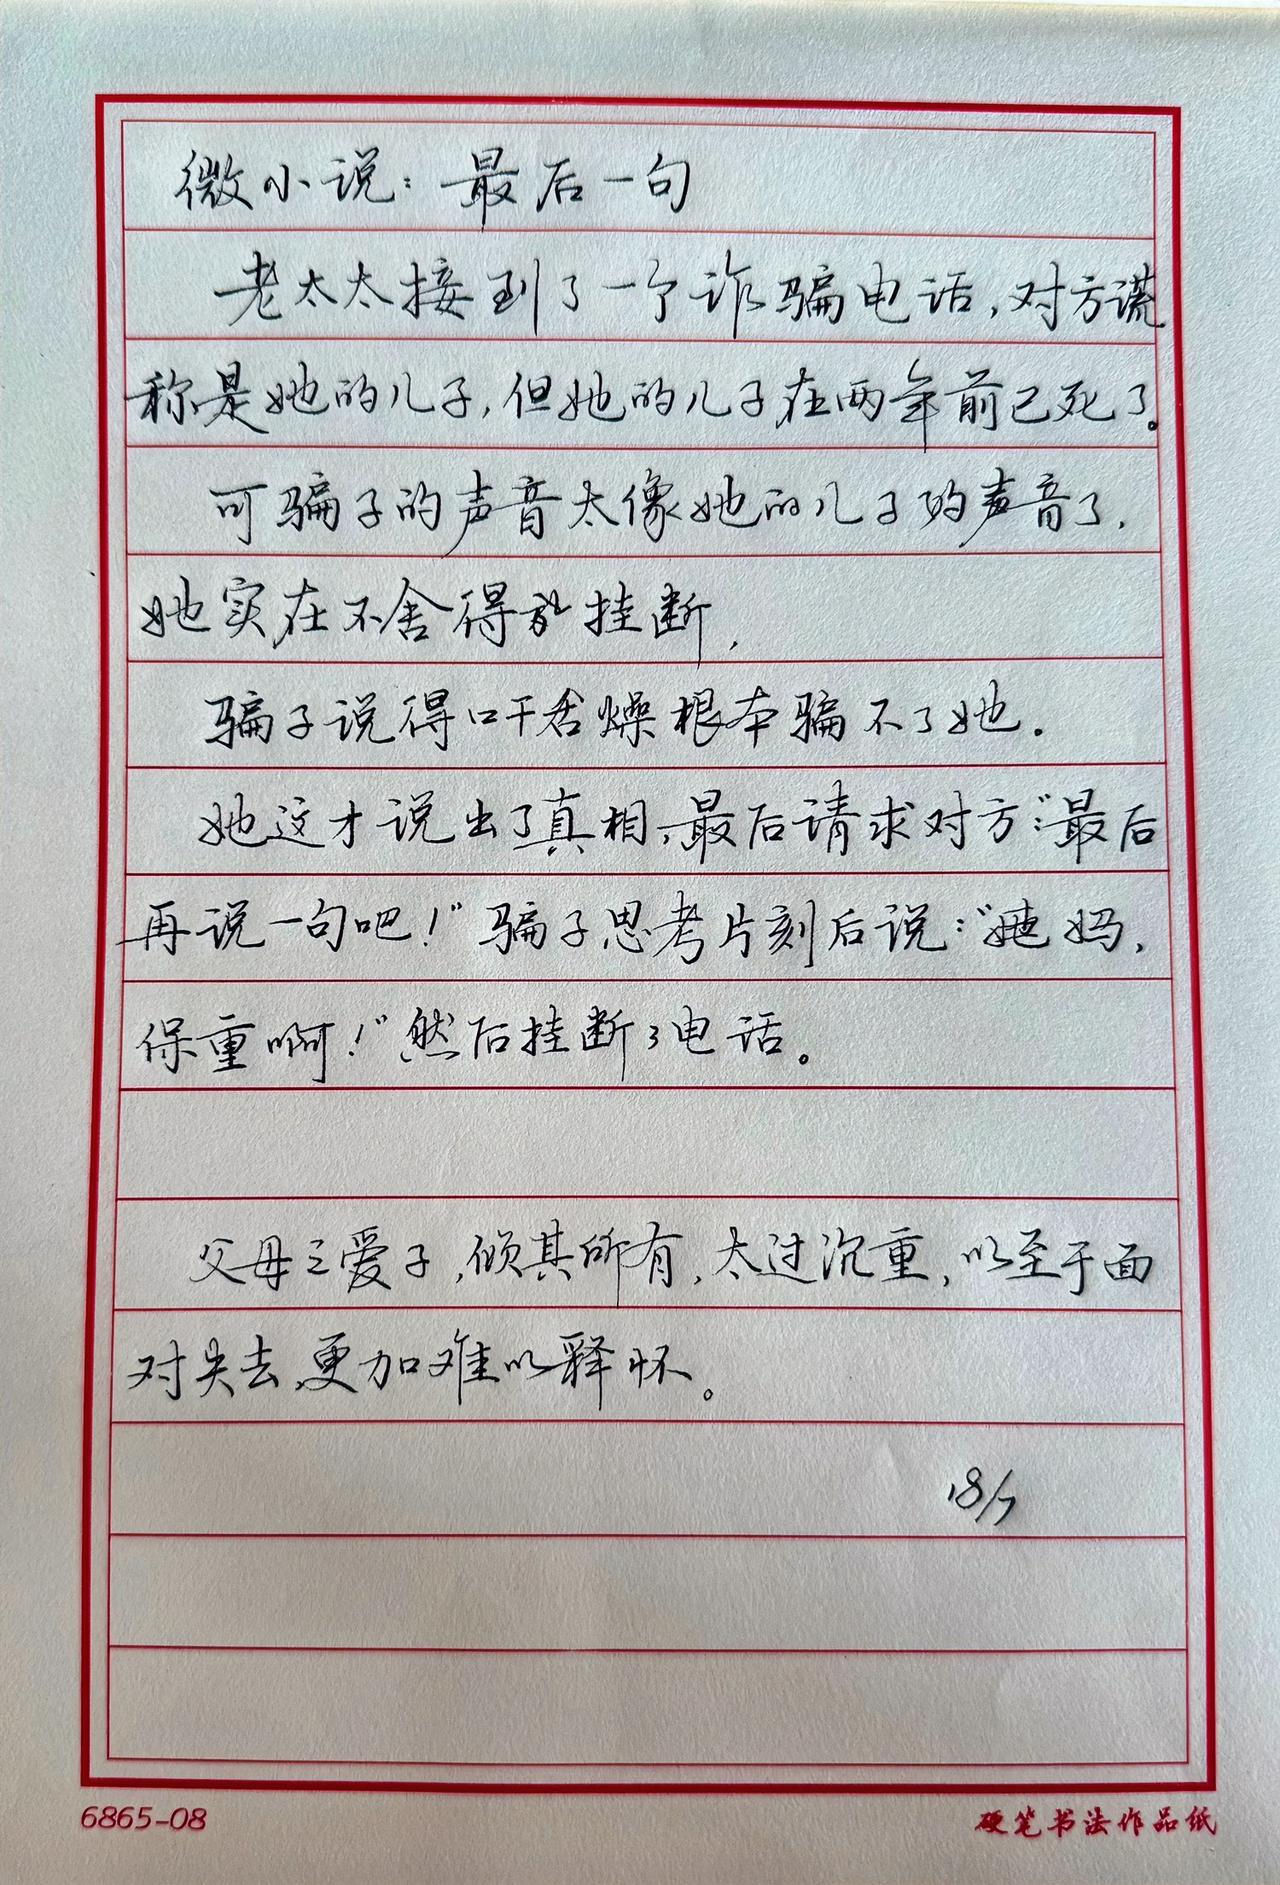 微小说：最后一句
老太太接到了一个诈骗电话，对方谎
称是她的儿子，但她的儿子在两年前已死了。
可骗子的声音太像她的儿子的声音了，
她实在不舍得挂断，
骗子说得口干舌燥根本骗不了她。
她这才说出了真相，最后请求对方：“最后
再说一句吧！”骗子思考片刻后说：“妈，
保重啊！”然后挂断了电话。
父母之爱子，倾其所有，太过沉重，以至于面
对失去，更加难以释怀。
18/7
6865-08
硬笔书法作品纸